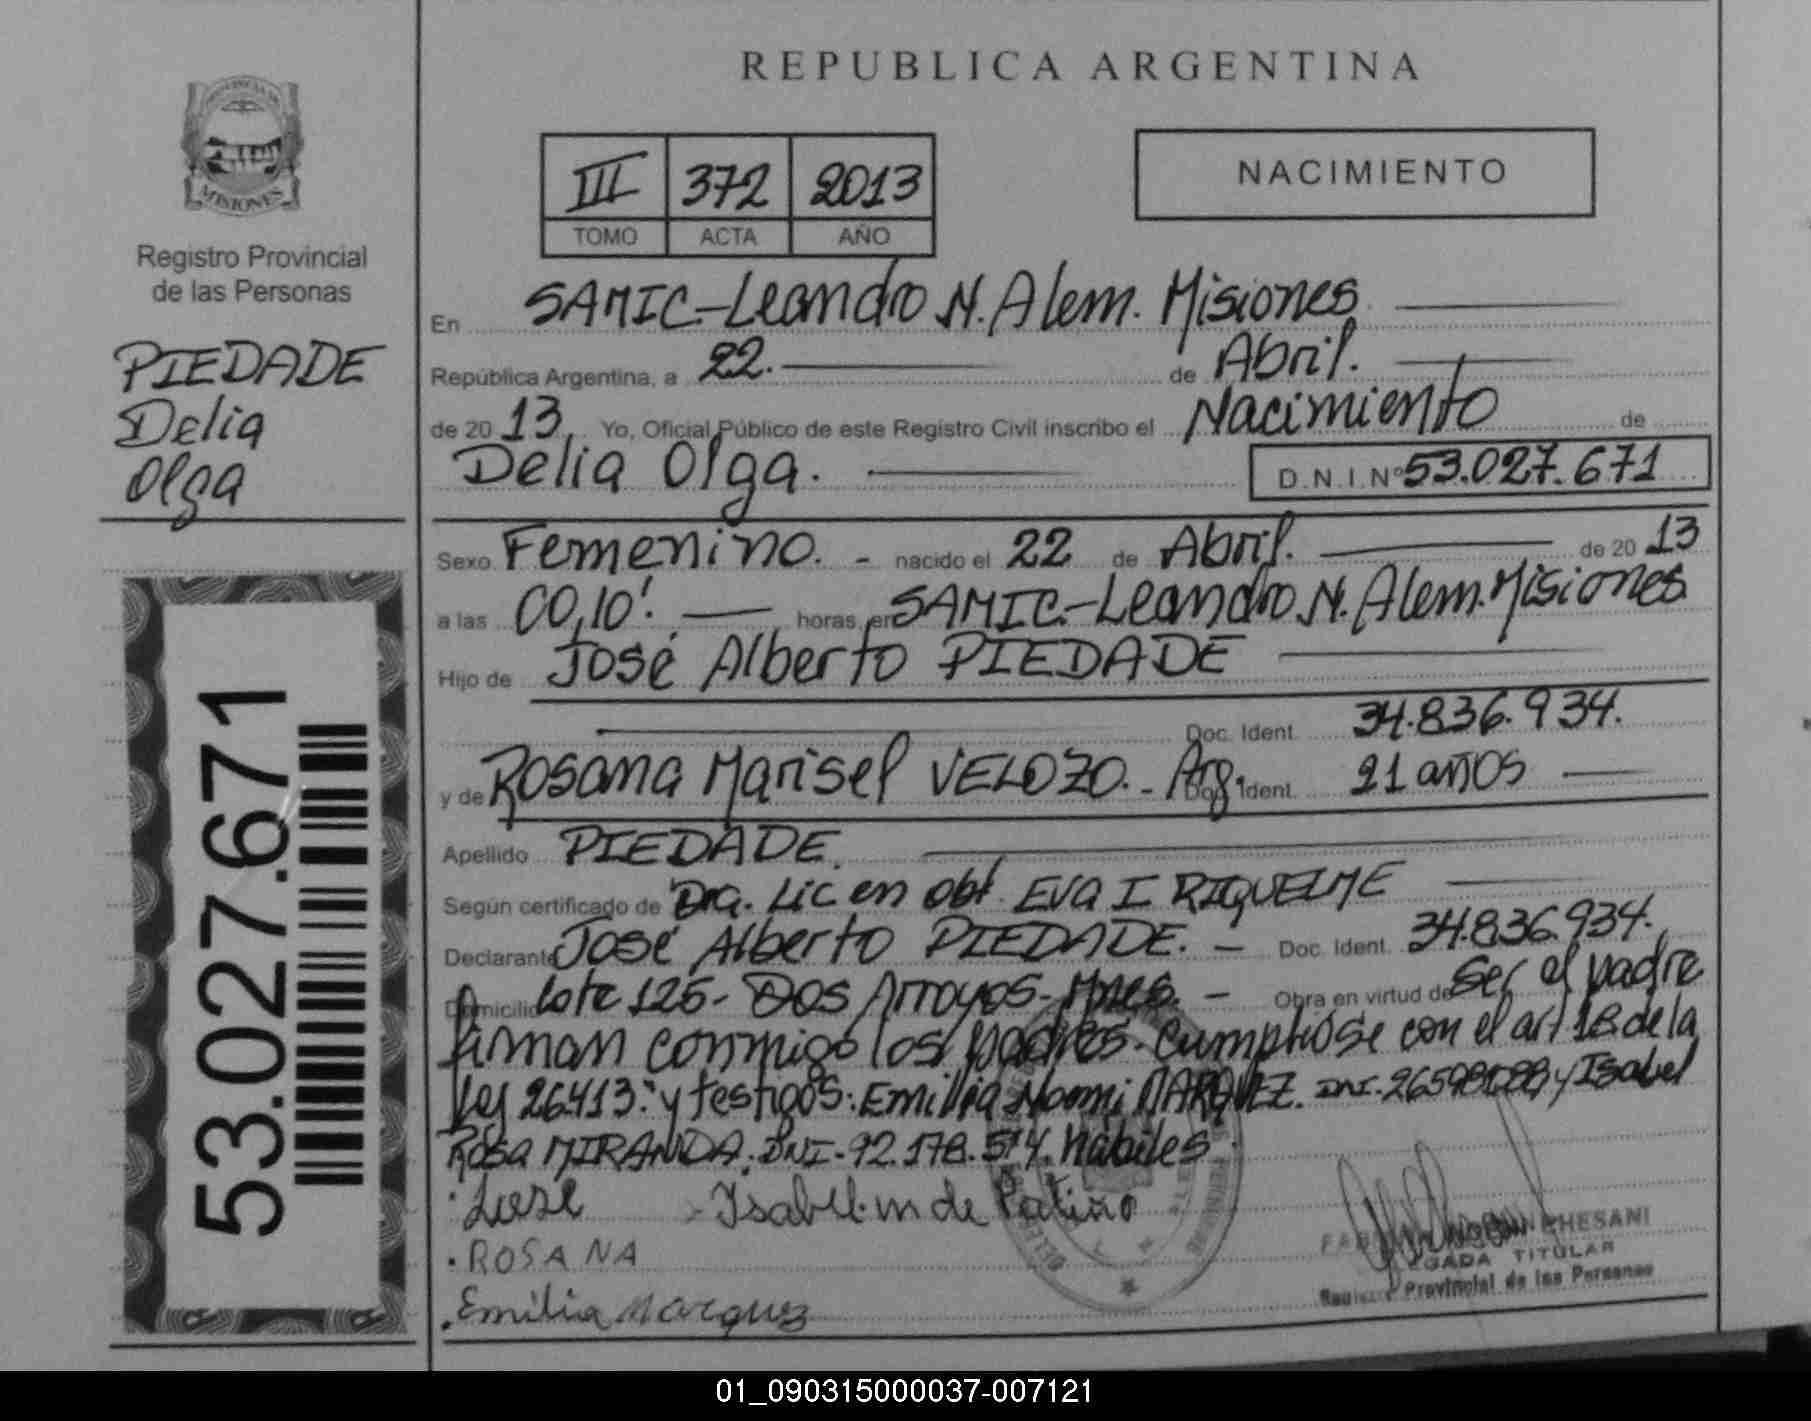 REPUBLICA ARGENTINA
PROVINCIA DE
MISIONES
Registro Provincial
de las Personas
PIEDADE
Delia
Olga
53.027.671
III 372 2013
TOMO ACTA AÑO
NACIMIENTO
En SAMIC-Leandro N. Alem. Misiones
República Argentina, a 22. de Abril.
de 20 13 Yo, Oficial Público de este Registro Civil inscribo el Nacimiento de
Delia Olga. D.N.I.Nº 53.027.671
Sexo Femenino. - nacido el 22 de Abril. de 20 13
a las 00,10'. horas, en SAMIC-Leandro N. Alem. Misiones
Hijo de José Alberto PIEDADE
Doc. Ident. 34.836.934.
y de Rosana Marisel VELOZO. - Arg. Doc. Ident. 21 años
Apellido PIEDADE.
Según certificado de Dra. Lic en obt. EVA I RIQUELME
Declarante José Alberto PIEDADE. - Doc. Ident. 34.836.934.
Domicilio Lote 125- Dos Arroyos- Mnes. - Obra en virtud de Ser el padre
firman conmigo los padres. Cumpliose con el art 18 de la
Ley 26413." y testigos: Emilia Noemi MARQUEZ. DNI. y Isabel
Rosa MIRANDA. DNI- 92.178.514. hábiles
José Isabel m de Patiño
. ROSANA
. Emilia Marquez
TITULAR
Provincial de las Personas
01_090315000037-007121